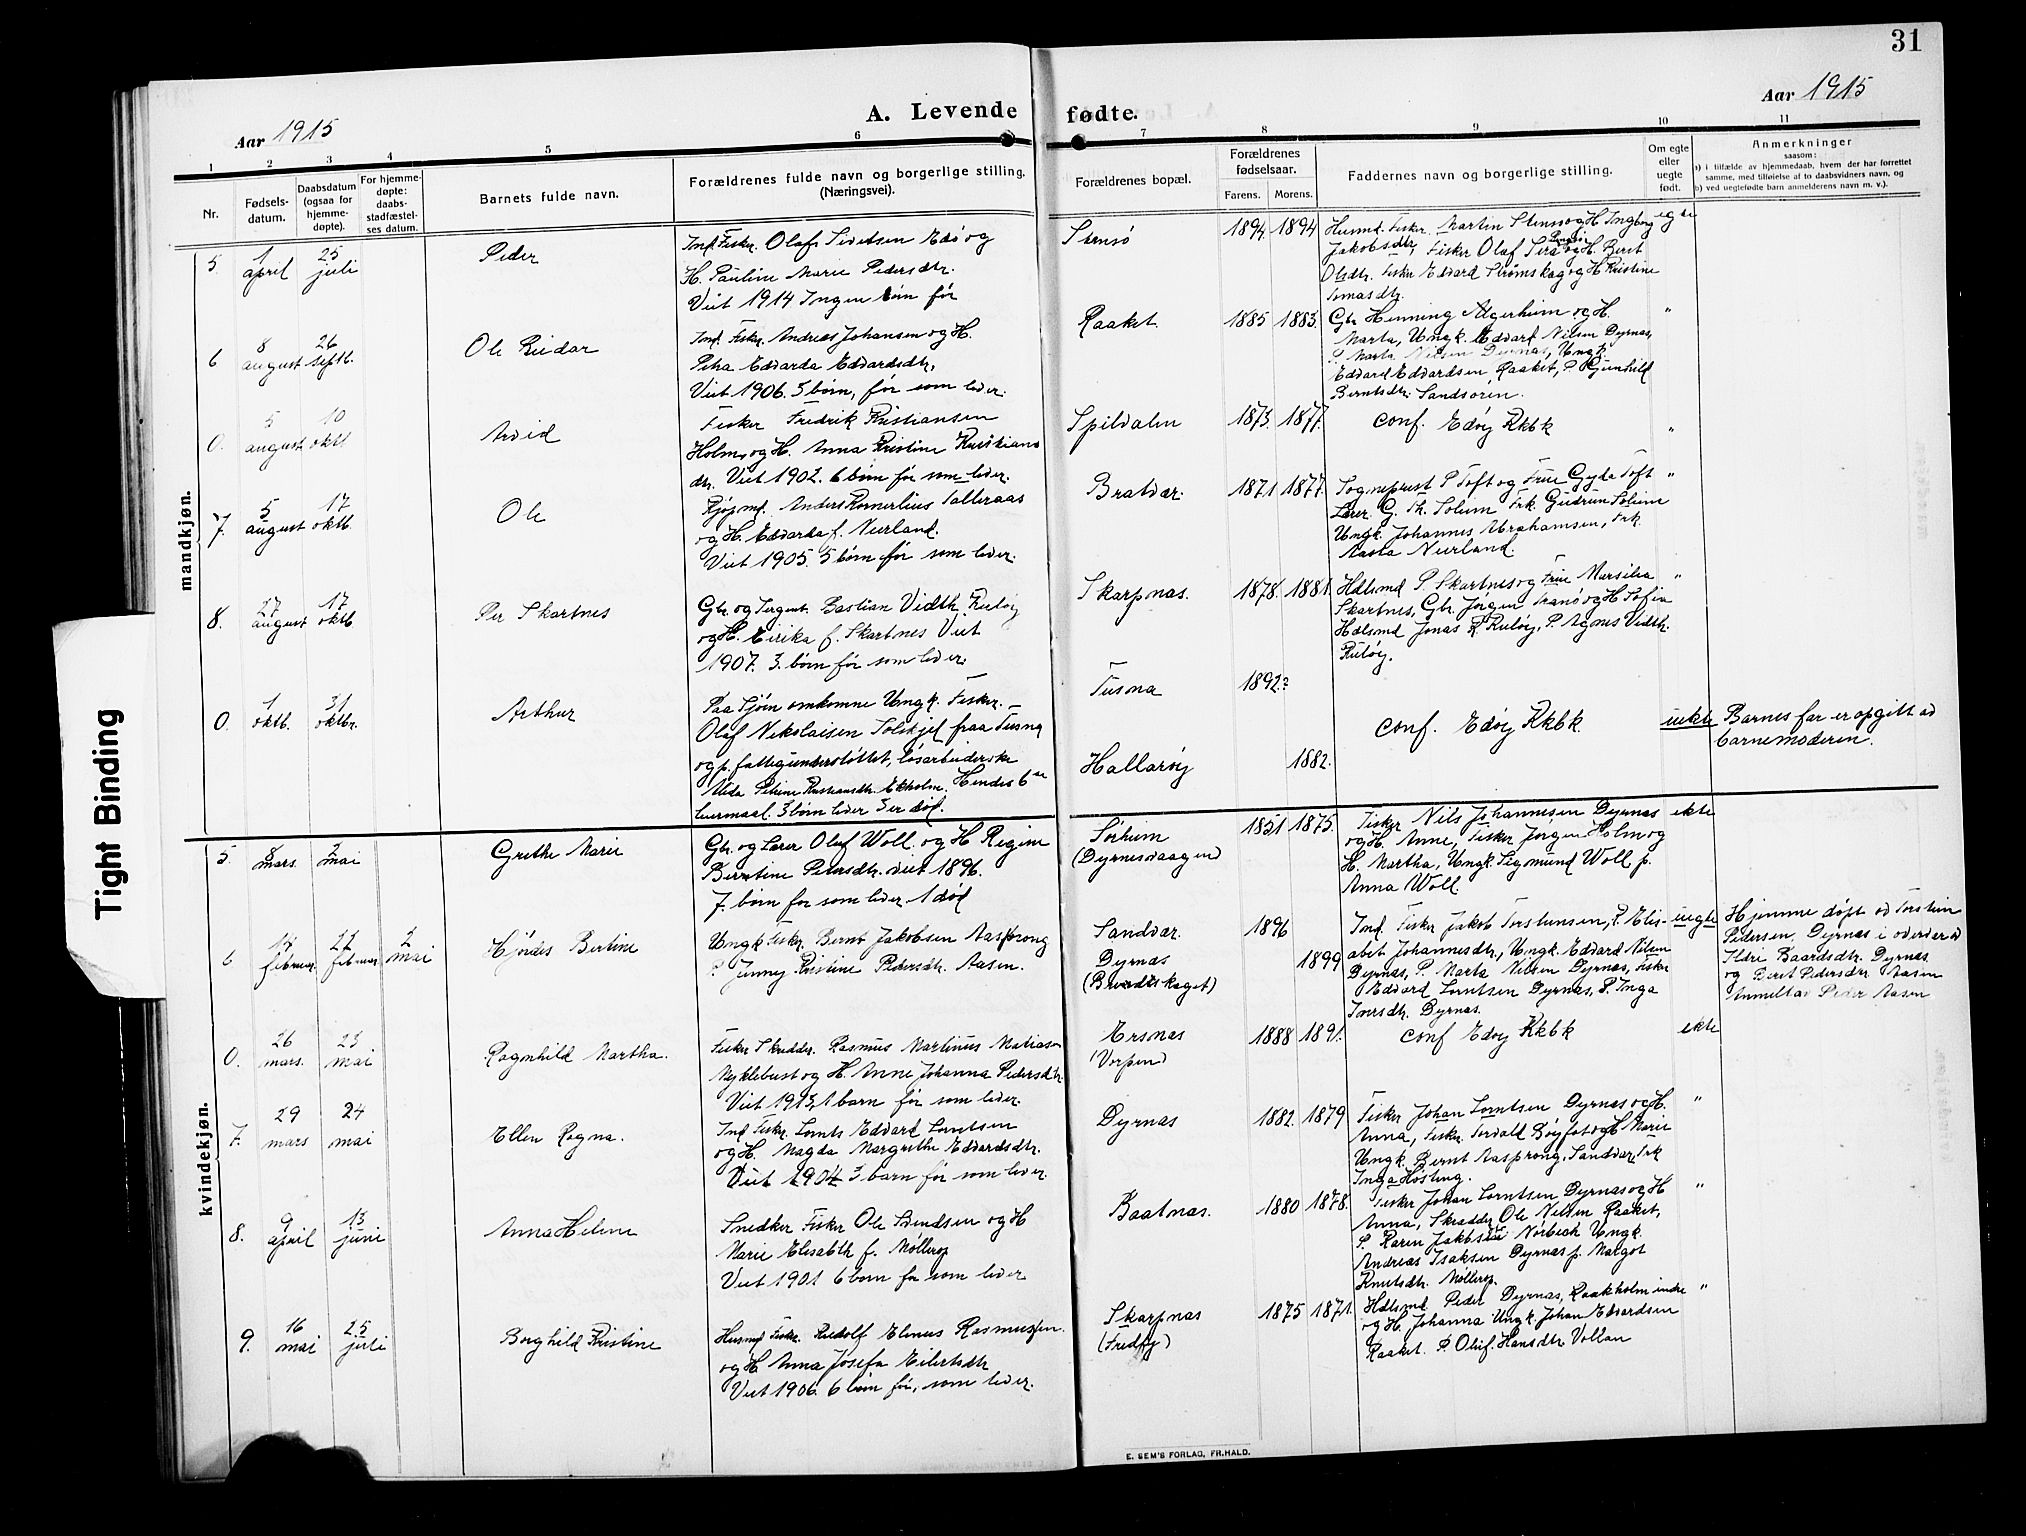 31
A. Levende fødte.
Aar 1915
Aar 1915
1 2 3 4 5 6 7 8 9 10 11
Nr.
Fødsels-
datum.
Daabsdatum
(ogsaa for
hjemme-
døpte).
For hjemme-
døpte:
daabs-
stadfæstel-
ses datum.
Barnets fulde navn.
Forældrenes fulde navn og borgerlige stilling.
(Næringsvei).
Forældrenes bopæl.
Forældrenes
fødselsaar.
Farens. Morens.
Faddernes navn og borgerlige stilling.
Om egte
eller
uegte
født.
Anmerkninger
saasom:
a) i tilfælde av hjemmedaab, hvem der har forrettet
samme, med tilføielse af to daabsvidners navn, og
b) ved uegtefødte barn anmelderens navn m. v.).
mandkjøn.
5 1 april 25 juli
Peder
Ind. Fisker. Olaf Sivertsen Edø og
H. Pauline Marie Pedersdtr.
Viet 1914 Ingen børn før
Stensø
1894 1894
Husmd. Fisker. Martin Stensø og H. Ingborg
Jakobsdtr, Fisker Olaf og H. Beret
Olsdtr. Fisker Edvard Strømskag og H Kristine
egte
6 8 august 26 septb.
Ole Reidar
Ind. Fisker. Andreas Johansen og H.
Petra Edvarda Edvardsdtr,
Viet 1906. 5 børn, før som lever.
Raaket.
1885 1883.
Gbr Henning Algerheim og H.
Marta, Ungk. Edvard Nilsen Dyrnas,
P. Marta Nilsen Dyrnas, Ungk.
Edvard Edvardsen Raaket, P. Gjunhild
Berntsdtr. Sandsøren.
"
0. 5 august 10 oktb
Arvid
Fisker Fredrik Kristiansen
Holm, og H. Anna Kristine Kristians
dtr. Viet 1902. 6 børn før som lever.
Spildalen
1873. 1877.
conf. Edøy Kkbk
"
7. 5 august 17 oktb.
Ole
Kjøpmd. Anders Kornelius Talleraas
og H. Edvarda f. Neerland.
Viet 1905. 5 børn før som lever.
Bratvær.
1871 1877.
Sogneprest P Toft og Frue Gyda Toft
Lærer. G. Th. Solem Frk. Gudrun Soleim
Ungk. Johannes Abrahamsen, Frk.
Aasta Neerland.
"
8. 27 august 17 oktb
Per Skartnes
Gbr. og Sergent. Bastian Vidth Kuløy
og H. Eirika f. Skartnes Viet
1907. 3. børn før som lever.
Skarpnas.
1878. 1881.
Hdlsmd P. Skartnes og Frue Marselia
Skartnes, Gbr. Jørgen Tranø og H Sofia
Hdlsmd Jonas R. Kuløy, P. Agnes Vidth.
Kuløy.
"
0. 1 oktb. 31 oktbr.
Arthur
Paa Sjøen omkomne Ungk. Fisker.
Olaf Nikolaisen Solskjel fraa Tusna
og p. fattigunderstøttet, løsarbeiderske
Petrine Kristiansdtr. Ekholm. Hendes 6te
leiermaal. 3 børn lever 3 er død.
Tusna
1892?
Hallarøy
1882.
conf. Edøy Kkbk.
uekte
Barnes far er opgitt av
barnemoderen.
kvindekjøn.
5. 8 mars. 2 mai
Grethe Marie
Gbr. og Lærer Oluf Woll og H Regine
Berntine Petersdtr. viet 1896.
7. børn før som lever 1 død
Sørheim
(Dyrnesvaagen)
1851 1875.
Fisker Nils Johannesen Dyrnas
og H. Anne, Fisker Jørgen Holm og
H. Martha, Ungk. Sigmund Woll p.
Anna Woll.
ekte
6 14 februar. 21 februar 2 mai
Hjørdis Bertine
Ungk. Fisker. Bernt Jakobsen Aasprong
P. Jenney Kristine Pedersdtr. Aasen.
Sandvær.
Dyrnas
1896
1899
Ind. Fisker Jakob Torstensen, P. Elis-
abet Johannesdtr, Ungk. Edvard Nilsen
Dyrnas, P. Marta Nilsen Dyrnas, Fisker
Edvard Lorntsen Dyrnas, P. Inga
Iversdtr. Dyrnas.
uegte
Hjemme døpt av Torstein
Pedersen, Dyrnas i overvær av
Baardsdtr. Dyrnas
og Beret Pedersdtr Aasen
Anmelt av Peder Aasen
0. 26 mars. 23 mai
Ragnhild Martha.
Fisker Skredder. Rasmus Martinus Matiasen
Myklebust og H. Anne Johanna Pedersdtr.
Viet 1913, 1 barn før som lever.
Ersnas
(Vorpen)
1888 1891.
conf Edøy Kkbk
ekte
7. 29 mars 24 mai
Ellen Ragna.
Ind Fisker. Lornts Edvard Lorntsen
og H. Magda Margrethe Edvardsdtr.
Viet 1904 3 barn før som lever
Dyrnas
1882. 1879
Fisker Johan Lorntsen Dyrnas og H.
Anna, Fisker. Torvald Bøyfot og H Marie
Ungk. Bernt Aasprong, Sandvær, Frk
Inga Høsling.
"
8. 9 april 13 juni
Anna Helene
Snedker Fisker Ole Svendsen og H
Marie Elisabth f. Møllerop
Viet 1901 6 born før som lever
Baatnas.
1880 1878.
Fisker Johan Lorntsen Dyrnas og H
Anna, Skrædder Ole Nilsen Raaket,
P. Karen Jakobsen Nørbech Ungk.
Andreas Isaksen Dyrnas p. Margot
Knutsdtr. Møllerop.
"
9. 16 mai 25 juli
Borghild Kristine
Husmd Fisker. Rudolf Elenus Rasmussen
og H Anna Josefa Eilertsdtr
Viet 1906. 6 børn før, som lever.
Skarpnas
(Fredøy)
1875 1871.
Hdlsmd. Peder Dyrnas, Raakholm indre
og H. Johanna Ungk. Johan Edvardsen
Raaket. P. Oluf. Hansdtr Vollan
"
E. SEM'S FORLAG, FR.HALD.
Tight Binding